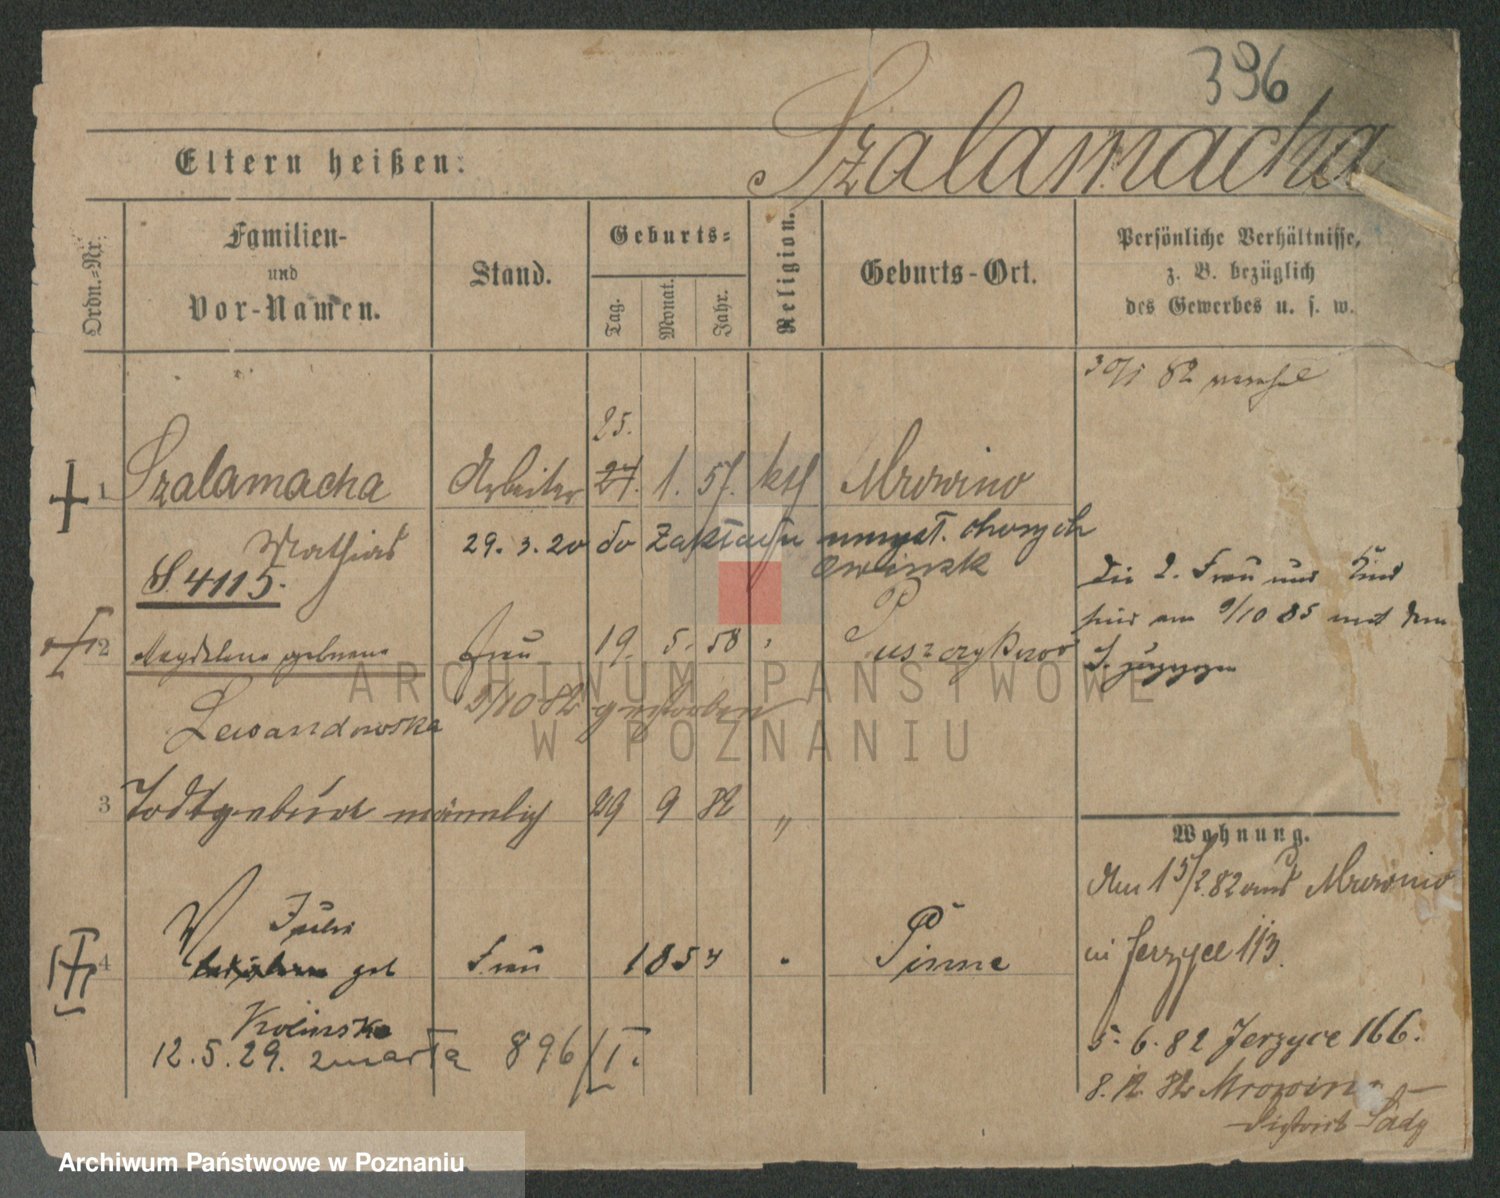 396
Eltern heißen: Szalamacha
Ordn.-Nr. Familien- und Vor-Namen. Stand. Geburts- Tag. Monat. Jahr. Religion. Geburts-Ort. Persönliche Verhältnisse, z. B. bezüglich des Gewerbes u. s. w.
30/1 82
25.
1 Szalamacha Arbeiter 27. 1. 57. kth Mrowino
Mathias 29. 3. 20 do Zakładu umysł. chorych
Owinsk
S. 4115.
Die 2. Frau und Kind
sind am 9/10 85 mit dem
2 Magdalena geborene Frau 19. 5. 58 " Puszczykowo
S. zugezogen
Lewandowska 9/10 82 gestorben
3 Todtgeburt männlich 29 9 82 "
Wohnung.
Den 15/2. 82 aus Mrowino
in Jerzyce 113.
Julie
4 geb Frau 1854 " Pinne
Kolinska
12. 5. 29. zmarła 896/I.
5. 6. 82 Jerzyce 166.
8. 12. 82 Mrowino
District Sady
ARCHIWUM PAŃSTWOWE
W POZNANIU
Archiwum Państwowe w Poznaniu